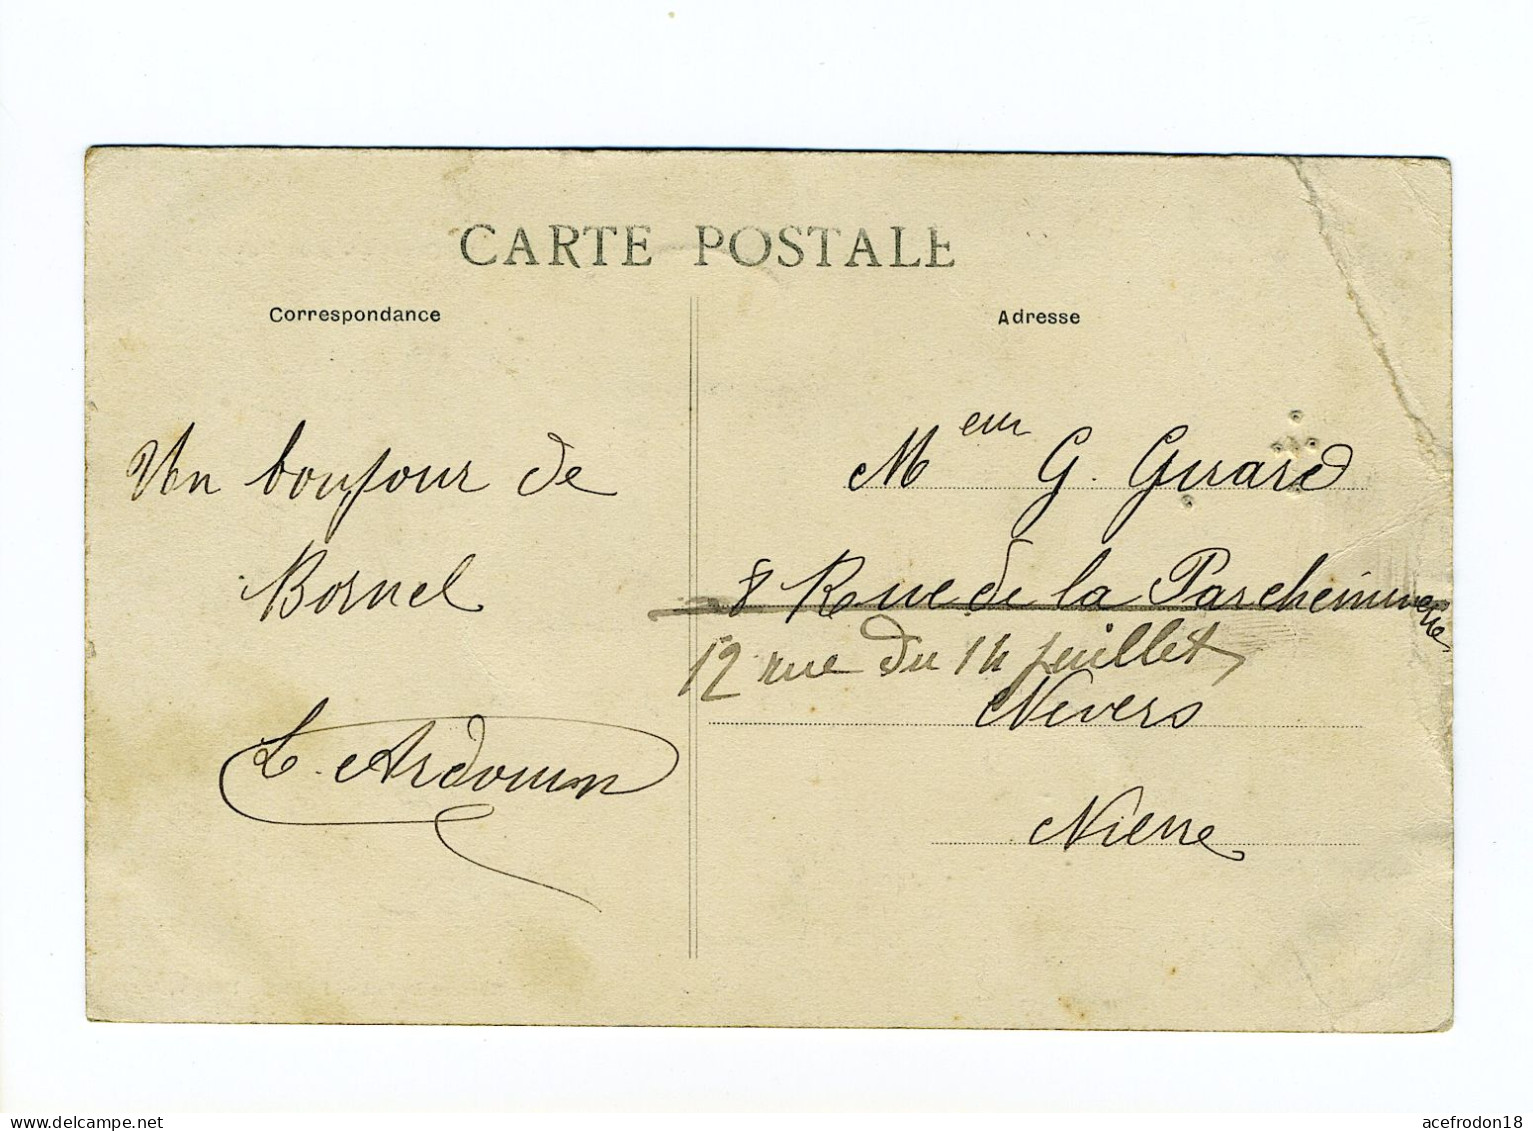 CARTE POSTALE
Correspondance
Adresse
Un bonjour de
Bornel
L. Ardouin
M eur G. Guard
8 Rue de la Parcheminerie
12 rue du 14 juillet
Nevers
Nievre
acefrodon18